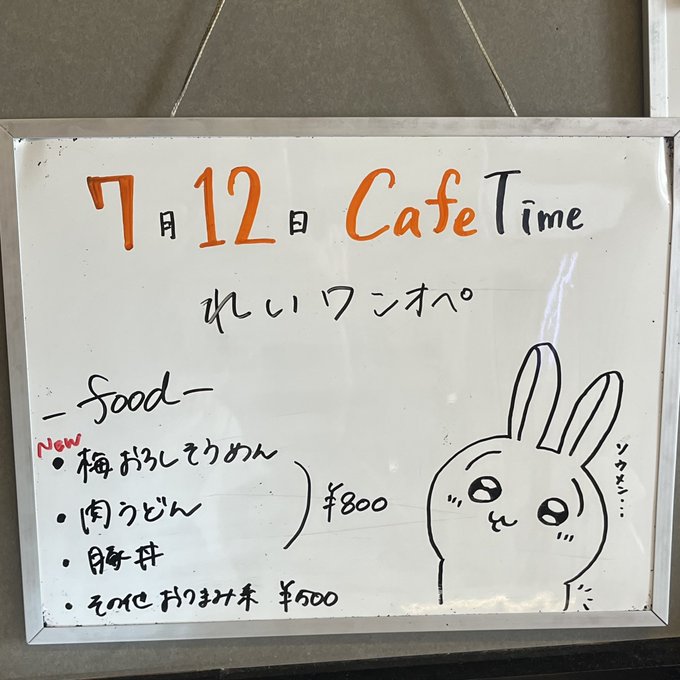 7月12日 CafeTime
れいワンオペ
-food-
New
・梅おろしそうめん
・肉うどん
・豚丼
¥800
・その他おつまみ系 ¥500
ソウメン...